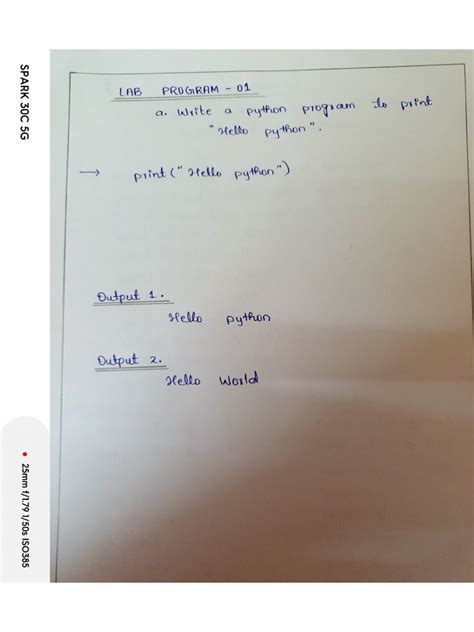 LAB PROGRAM - 01
a. Write a python program to print
"Hello python".
→ print ("Hello python")
Output 1.
Hello python
Output 2.
Hello World
SPARK 30C 5G
25mm f/1.79 1/50s ISO385